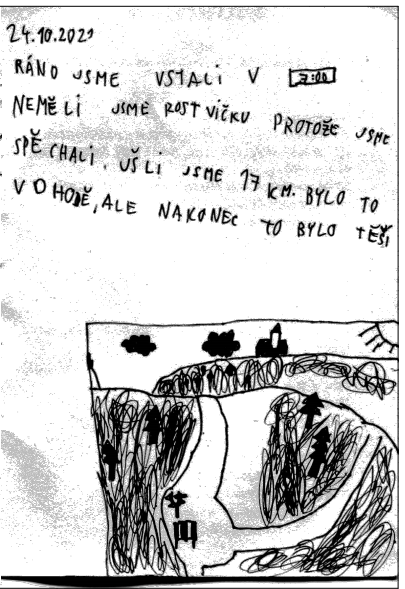 24.10.2021
RÁNO JSME VSTALI V 7:00
NEMĚLI JSME ROSTVIČKU PROTOŽE JSME
SPĚCHALI. UŠLI JSME 17 KM. BYLO TO
V OHODĚ, ALE NAKONEC TO BYLO TĚŠÍ